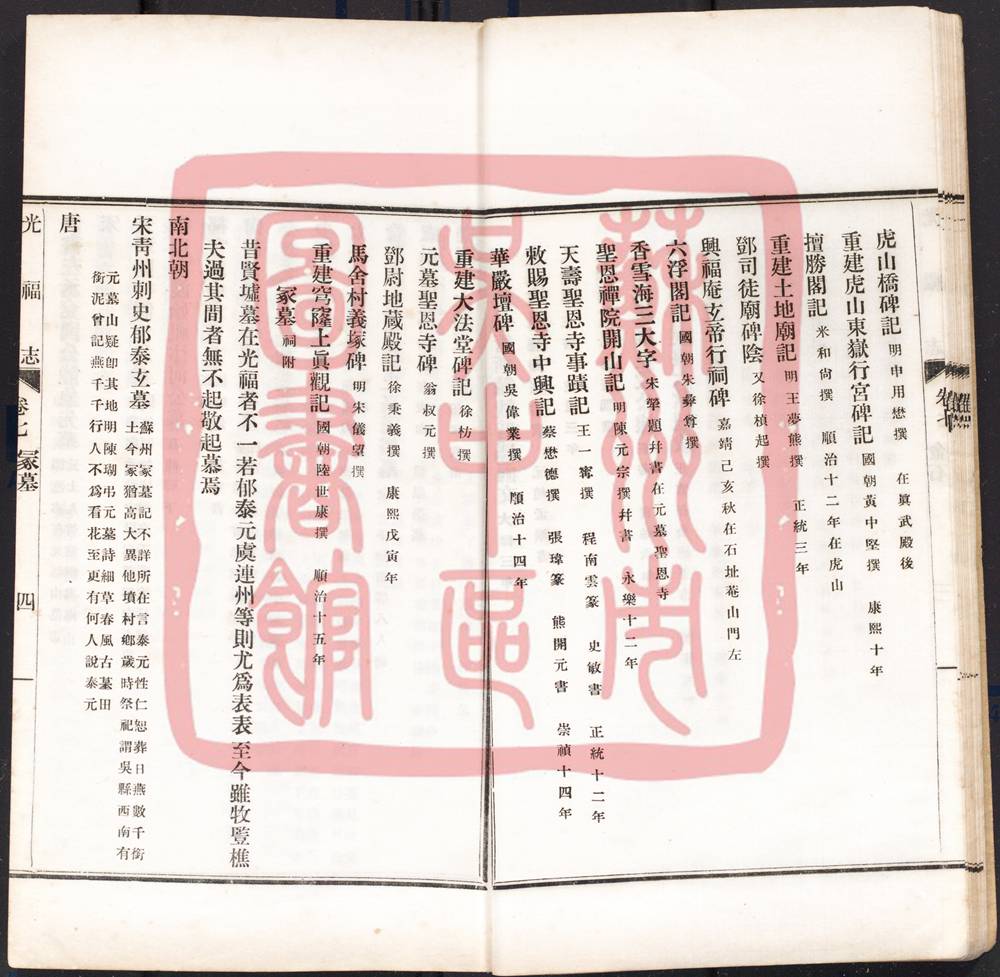 虎山橋碑記 明申用懋撰 在眞武殿後
重建虎山東嶽行宮碑記 國朝黃中堅撰 康熙十年
擅勝閣記 米和尙撰 順治十二年在虎山
重建土地廟記 明王夢熊撰 正統三年
鄧司徒廟碑陰 又徐楨起撰
興福庵玄帝行祠碑 嘉靖己亥秋在石址菴山門左
六浮閣記 國朝朱彝尊撰
香雪海三大字 宋犖題幷書在元墓聖恩寺
聖恩禪院開山記 明陳元宗撰幷書 永樂十二年
天壽聖恩寺事蹟記 王一寗撰 程南雲篆 史敏書 正統十二年
敕賜聖恩寺中興記 蔡懋德撰 張瑋篆 熊開元書 崇禎十四年
華嚴壇碑 國朝吳偉業撰 順治十四年
重建大法堂碑記 徐枋撰
元墓聖恩寺碑 翁叔元撰
鄧尉地藏殿記 徐秉義撰 康熙戊寅年
馬舍村義塚碑 明朱儀望撰
重建穹窿上眞觀記 國朝陸世康撰 順治十五年
冢墓 祠附
昔賢墟墓在光福者不一若郁泰元虞連州等則尤爲表表至今雖牧豎樵
夫過其間者無不起敬起慕焉
南北朝
宋靑州刺史郁泰玄墓 蘇州冢墓記不詳所在言泰元性仁恕葬日燕數千銜
土今冢猶高大異他墳村鄉歲時祭祀謂吳縣西南有
元墓山疑卽其地明陳瑚弔元墓詩細草春風古墓田
銜泥曾記燕千千行人不爲看花至更有何人說泰元
唐
光福志 卷七 冢墓 四
蘇州市
吳中區
圖書館